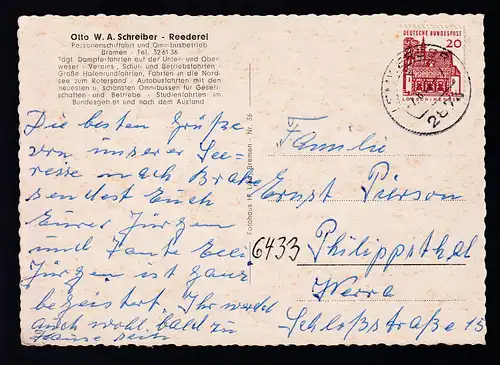 Otto W. A. Schreiber - Reederei
Personenschiffahrt und Omnibusbetrieb
Bremen - Tel. 32 61 36
Tägl. Dampferfahrten auf der Unter- und Ober-
weser - Vereins-, Schul- und Betriebsfahrten -
Große Hafenrundfahrten, Fahrten in die Nord-
see zum Rotersand - Autobusfahrten mit den
neuesten u. schönsten Omnibussen für Gesell-
schaften und Betriebe - Studienfahrten im
Bundesgebiet und nach dem Ausland
DEUTSCHE BUNDESPOST
20
Die besten Grüße
von unserer See-
reise nach Brake
sendest Euch
Eurer Jürgen
und Tante Elli
Jürgen ist ganz
begeistert. Ihr werdet
auch wohl bald zu
Hause sein
Fotohaus Bremen - Nr. 36
Familie
Ernst Pierson
6433 Philippsthal
Werra
Schloßstraße 15